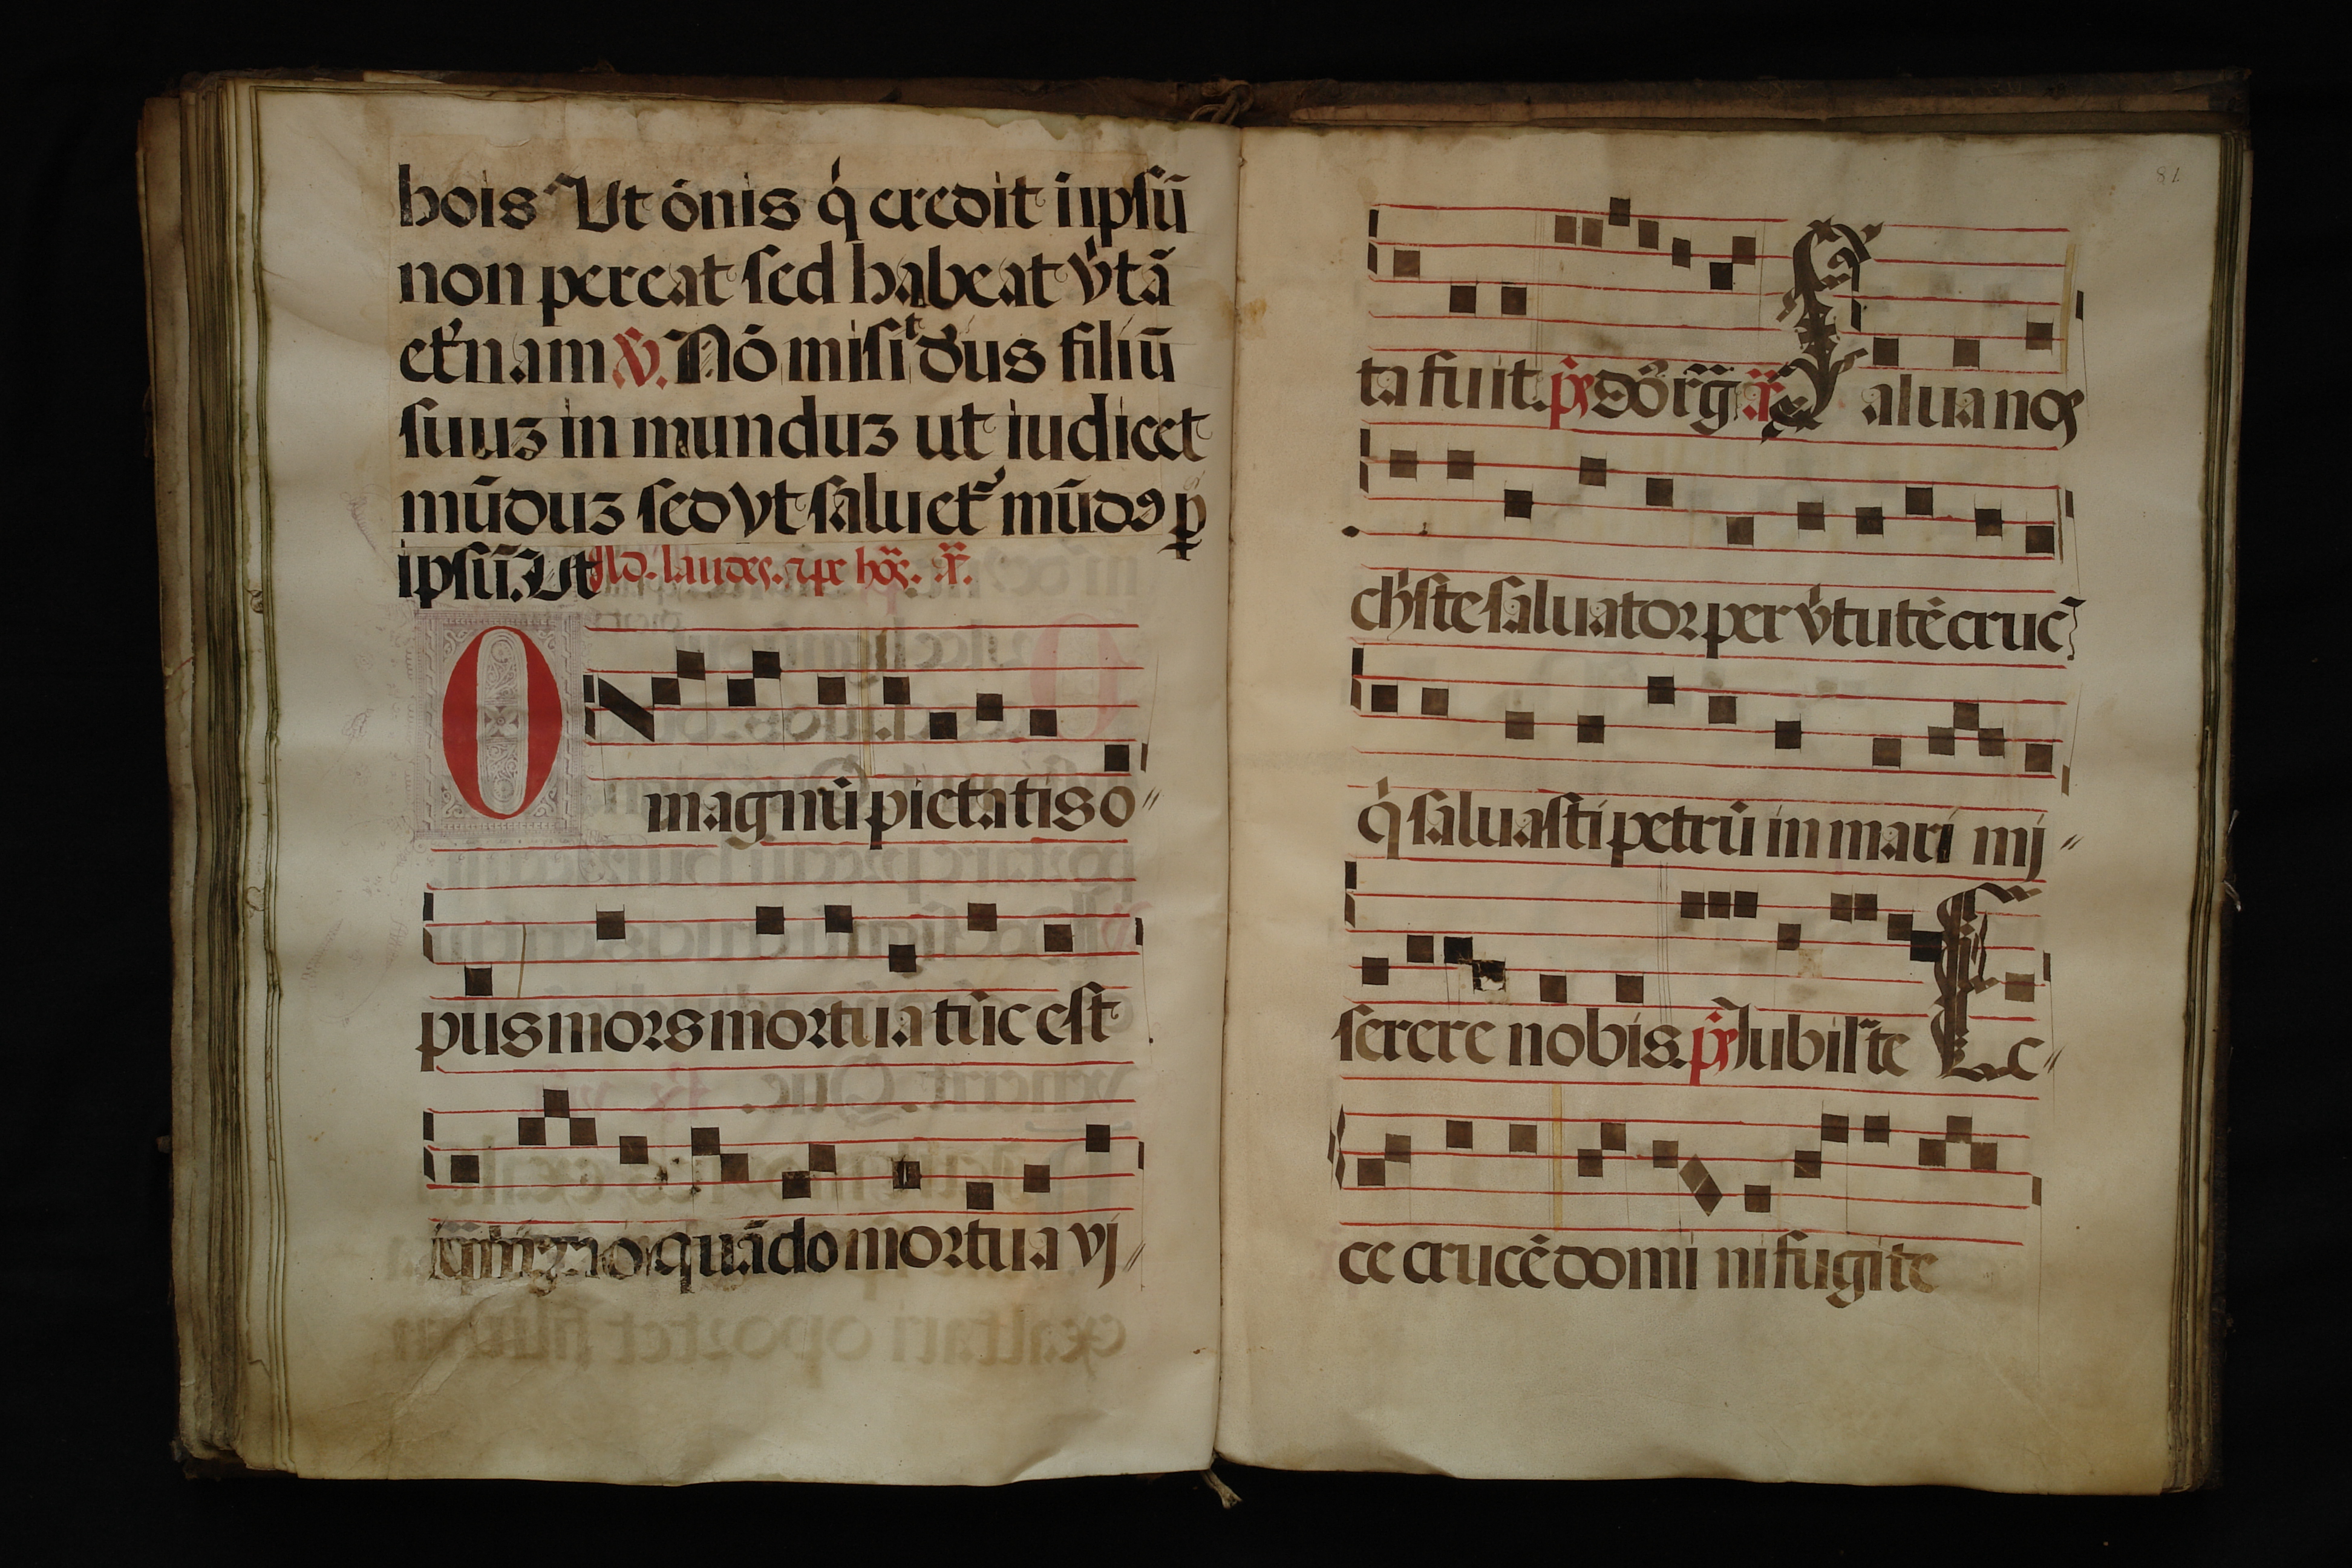 hois Ut ōnis q̇ credit i ip̄sū
non pereat sed habeat v̇tā
et̾nam ℣. Nō misit d̄us filiū
suuʒ in munduʒ ut iudicet
mūduʒ sed vt saluet̾ mūdꝯ p̱
ip̄sū. Ut Ad. laudes. ⁊ pe hōs. añ.
O magnū pietatis o
pus mors mortua tūc est
quādo mortua vi
ta fuit. p̄s dō̄s rḡ. añ Salua nos
chṙste saluator per v̇tutē cruc̄
q̇ saluasti petrū in mari mi
serere nobis. p̄s Jubil̾te Ec
ce crucē domi ni fugite
81